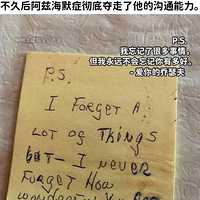 不久后阿兹海默症彻底夺走了他的沟通能力。
P.S.
我忘记了很多事情，
但我永远不会忘记你有多好。
- 爱你的乔瑟夫
P.S.
I FORGET A
LOT OF THINGS
BUT- I NEVER
FORGET HOW
WONDERFUL YOU ARE